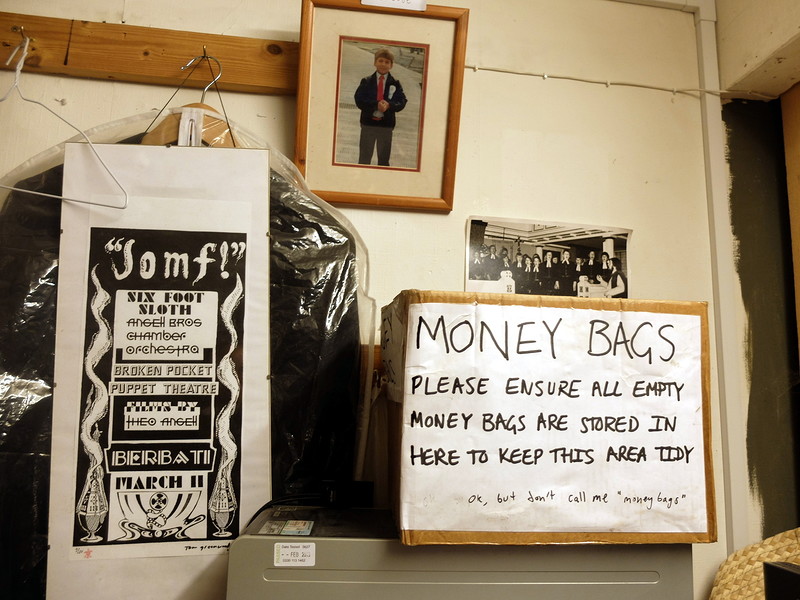 "Jomf!"
SIX FOOT
SLOTH
ANGELL BROS
CHAMBER
ORCHESTRA
BROKEN POCKET
PUPPET THEATRE
FILMS BY
THEO ANGELL
BERBATI
MARCH 11
MONEY BAGS
PLEASE ENSURE ALL EMPTY
MONEY BAGS ARE STORED IN
HERE TO KEEP THIS AREA TIDY
ok, but don't call me "money bags"
FEB